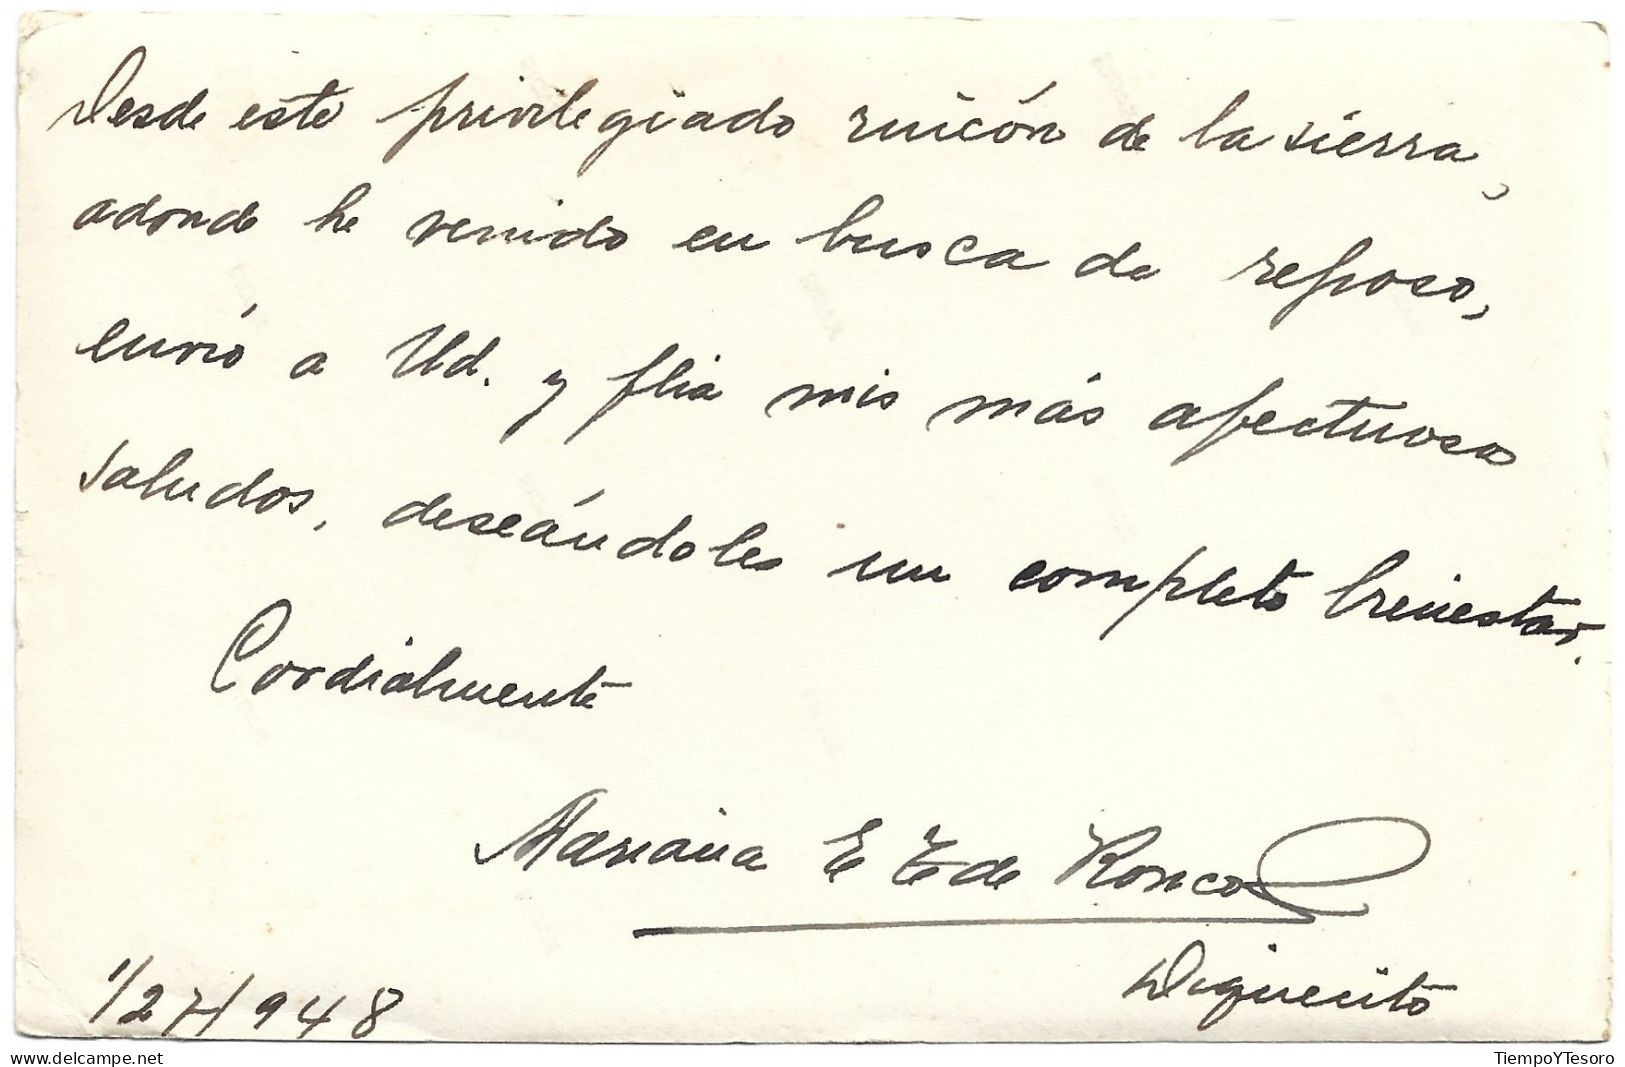 Desde este privilegiado rincón de la sierra,
adonde he venido en busca de reposo,
envío a Ud. y flia mis más afectuosos
saludos, deseándoles un completo bienestar.
Cordialmente
Mariana E de Ronco
Diquecito
1/2/948
delcampe.net
TiempoYTesoro